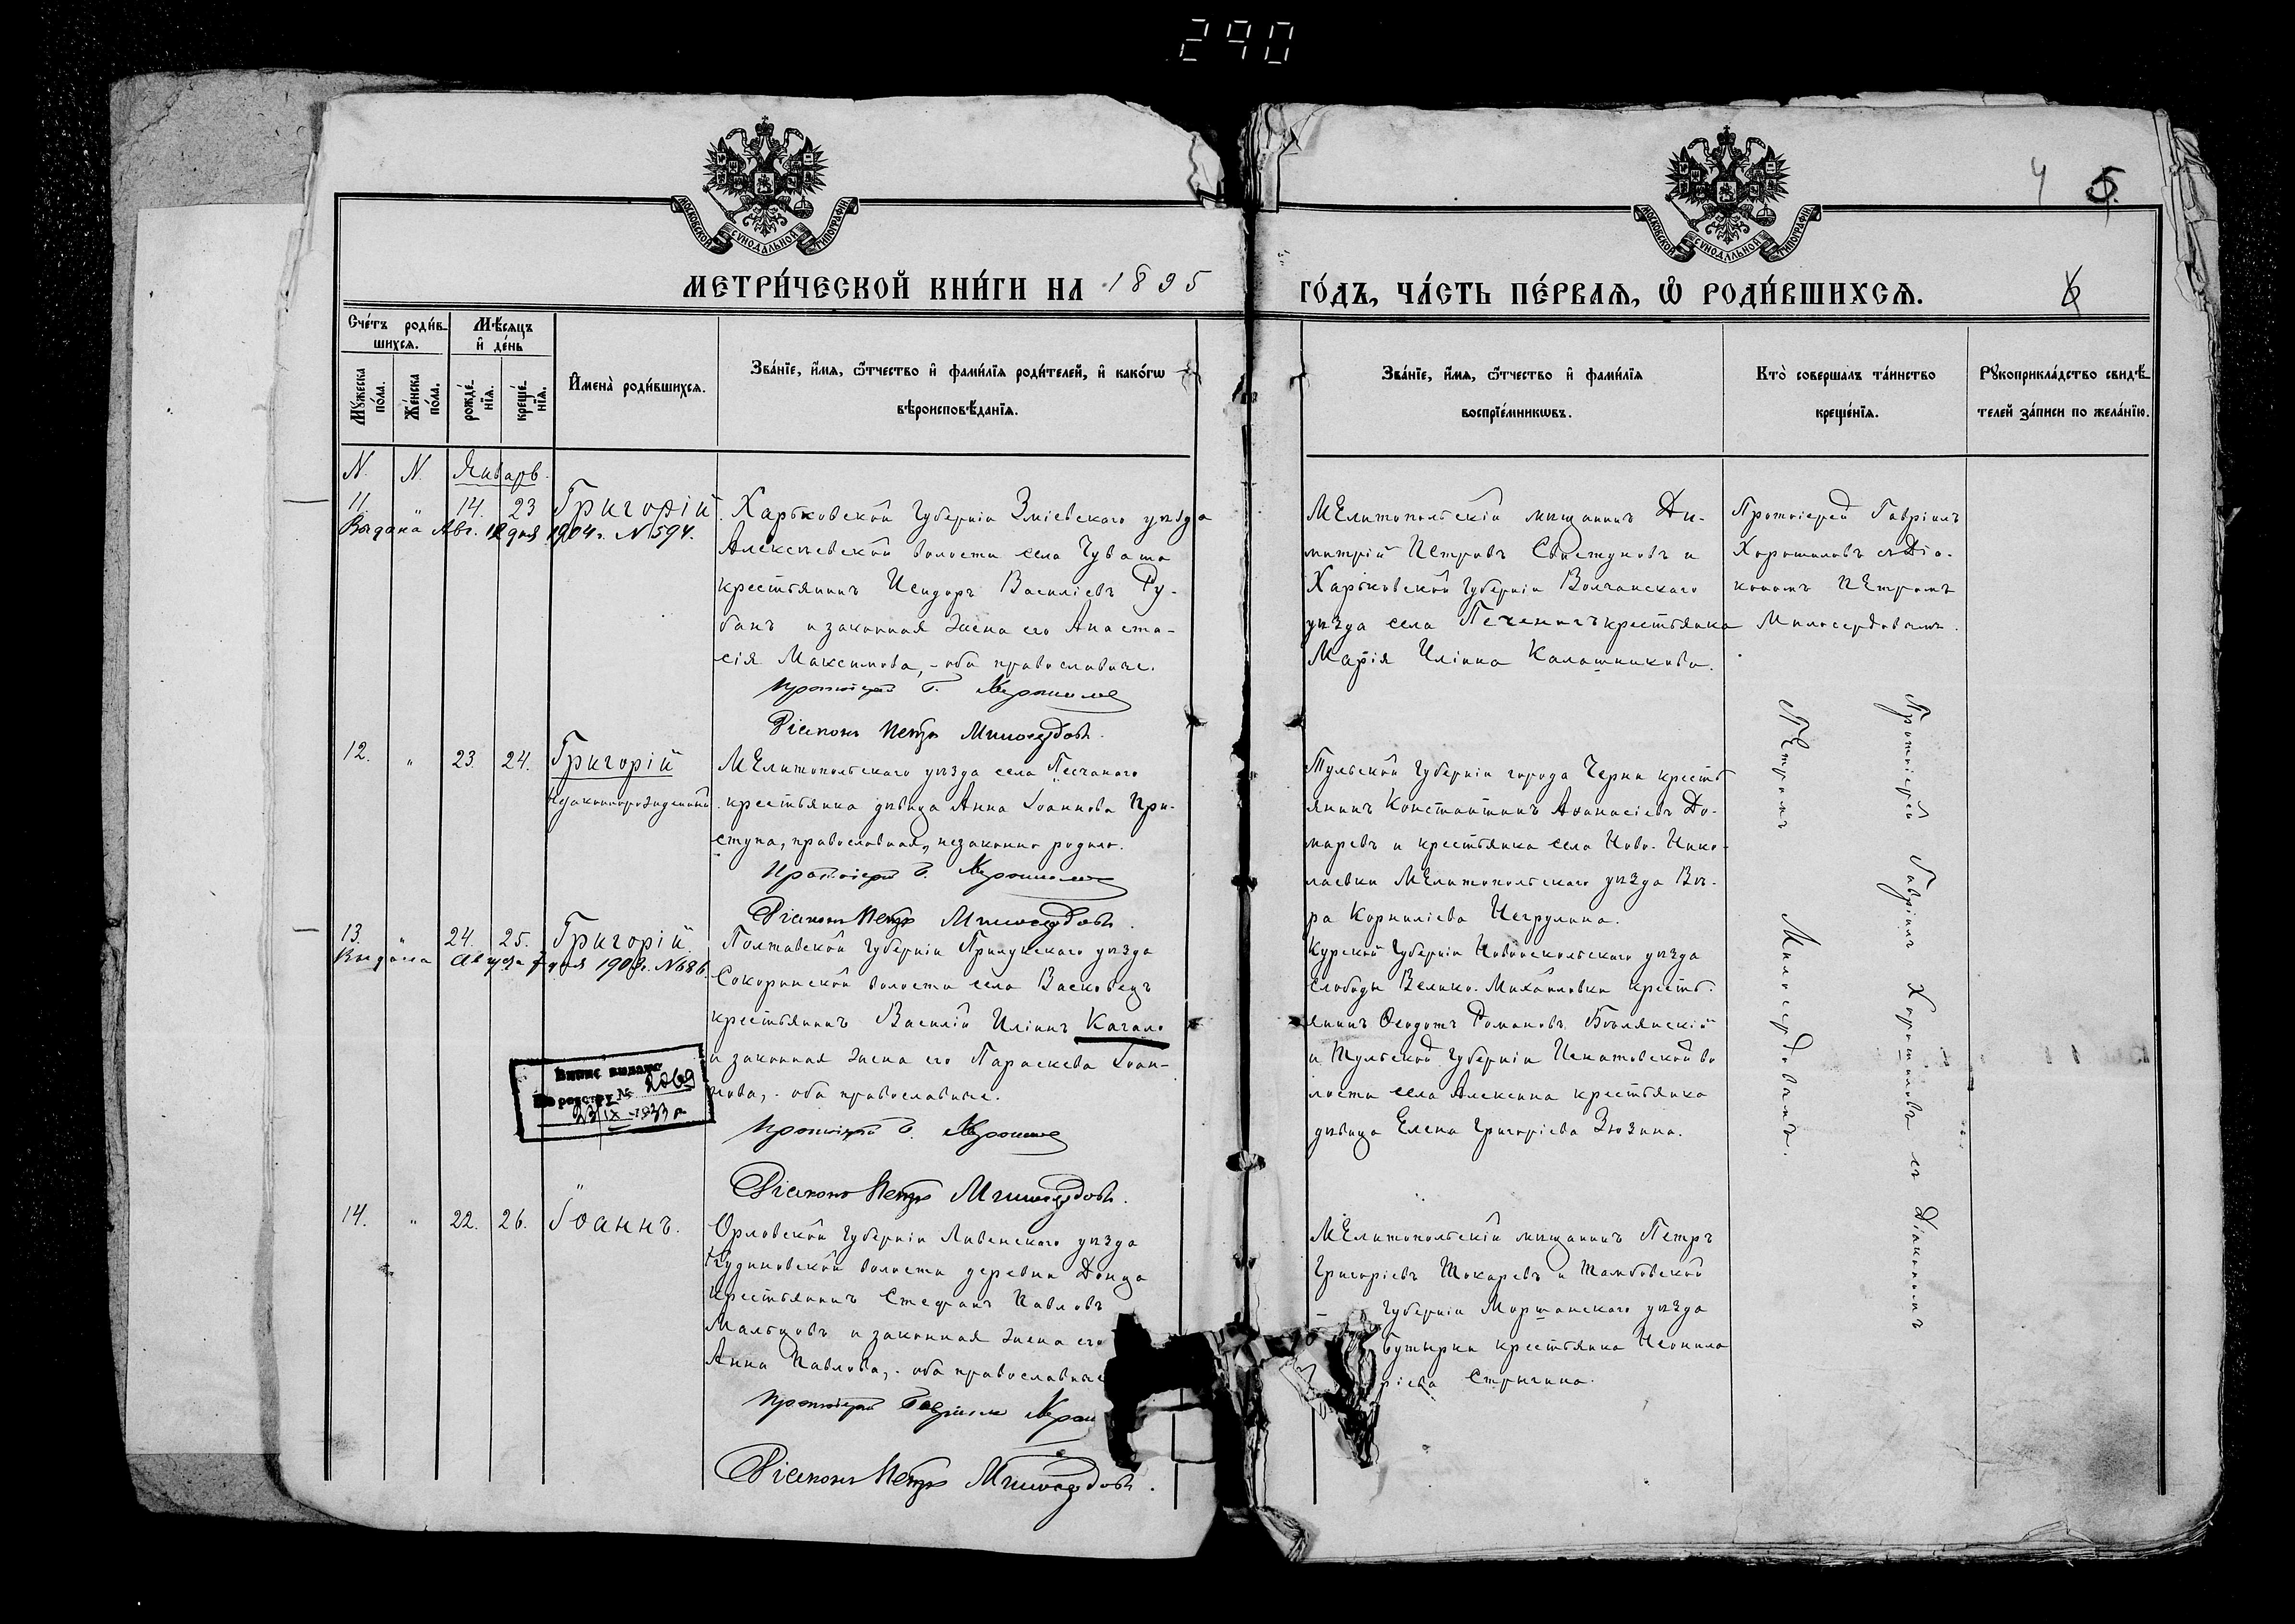 290
МОСКОВСКОЙ СѴНОДАЛЬНОЙ ТИПОГРАФІИ
МОСКОВСКОЙ СѴНОДАЛЬНОЙ ТИПОГРАФІИ
4 5.
МЕТРИ́ЧЕСКОЙ КНИ́ГИ НА 1895
ГО́ДЪ, ЧА́СТЬ ПЕ́РВАЯ, Ѽ РОДИ́ВШИХСЯ. 6
Сче́тъ роди́в-
шихся.
Му́жеска по́ла.
Же́нска по́ла.
Мѣ́сяцъ
и де́нь
рожде́-
нїя.
креще́-
нїя.
И҆мена̀ роди́вшихся.
Зва́нїе, и҆́мя, ѻ҆́тчество и҆ фами́лїя роди́телей, и҆ како́гѡ
вѣроисповѣ́данїя.
Зва́нїе, и҆́мя, ѻ҆́тчество и҆ фами́лїя
воспрїе́мникѡвъ.
Кто̀ соверша́лъ та́инство
креще́нїя.
Рꙋкоприкла́дство свидѣ́-
телей за́писи по жела́нїю.
N. N. Январь.
11. " 14. 23 Григорій
Выдана Авг. 12 дня 1904 г. N 594.
Харьковской Губерніи Зміевского уѣзда
Алексѣевской волости села Чуваша
крестьянинъ Исидоръ Василіевъ Ру-
банъ и законная жена его Анаста-
сія Максимова, - оба православные.
Протоіерей Г. Хорошиловъ
Діаконъ Петръ Милосердовъ.
Мелитопольскій мѣщанинъ Ди-
митрій Петровъ Свистуновъ и
Харьковской Губерніи Волчанскаго
уѣзда села Печенегъ крестьянка
Марія Иліина Калашникова.
Протоіерей Гавріилъ
Хорошиловъ съ Діа-
кономъ Петромъ
Милосердовымъ.
12. " 23. 24. Григорій
Незаконнорожденный
Мелитопольскаго уѣзда села Песчаного
крестьянка дѣвица Анна Іоаннова При-
ступа, православная, незаконно родила.
Протоіерей Г. Хорошиловъ
Діаконъ Петръ Милосердовъ.
Тульской Губерніи города Черни кресть-
янинъ Константинъ Аѳанасіевъ До-
маревъ и крестьянка села Ново-Нико-
лаевки Мелитопольскаго уѣзда Вѣ-
ра Корниліева Негрулина.
13. " 24. 25. Григорій.
Выдана Августа 7 дня 1903 г. N 686.
Полтавской Губерніи Прилукскаго уѣзда
Сокоринской волости села Васковецъ
крестьянинъ Василій Иліинъ Качало
и законная жена его Параскева Іоан-
нова, - оба православные.
Протоіерей Г. Хорошиловъ
Діаконъ Петръ Милосердовъ.
Випис видано
По реєстру № 2069
23 IX 1933 р.
Курской Губерніи Новооскольскаго уѣзда
слободы Велико-Михайловки кресть-
янинъ Ѳеодотъ Романовъ
и Тульской Губерніи во
лости села Алексина крестьянка
дѣвица Елена Григоріева Зюзина.
Протоіерей Гавріилъ Хорошиловъ съ Діакономъ
Петромъ Милосердовымъ.
14. " 22. 26. Іоаннъ.
Орловской Губерніи Ливенскаго уѣзда
волости деревни Донца
крестьянинъ Стефанъ Павловъ
Мальцовъ и законная жена его
Анна Павлова, - оба православные
Протоіерей Гавріилъ Хорош
Діаконъ Петръ Милосердовъ.
Мелитопольскій мѣщанинъ Петръ
Григоріевъ Токаревъ и Тамбовской
Губерніи Моршанскаго уѣзда
Бутырки крестьянка Неонила
ріева Стрыгина.